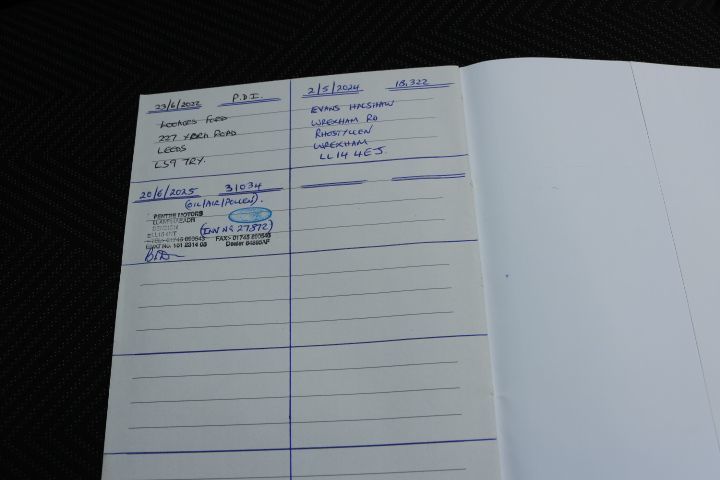 23/6/2022 P.D.I.
LOOKERS FORD
227 YORK ROAD
LEEDS
LS9 7RY.
2/5/2024 18,322
EVANS HALSHAW
WREXHAM RD
RHOSTYLLEN
WREXHAM
LL14 4EJ.
20/6/2025 31034
(OIL/AIR/POLLEN).
PENTRE MOTORS
(INV No 27872)